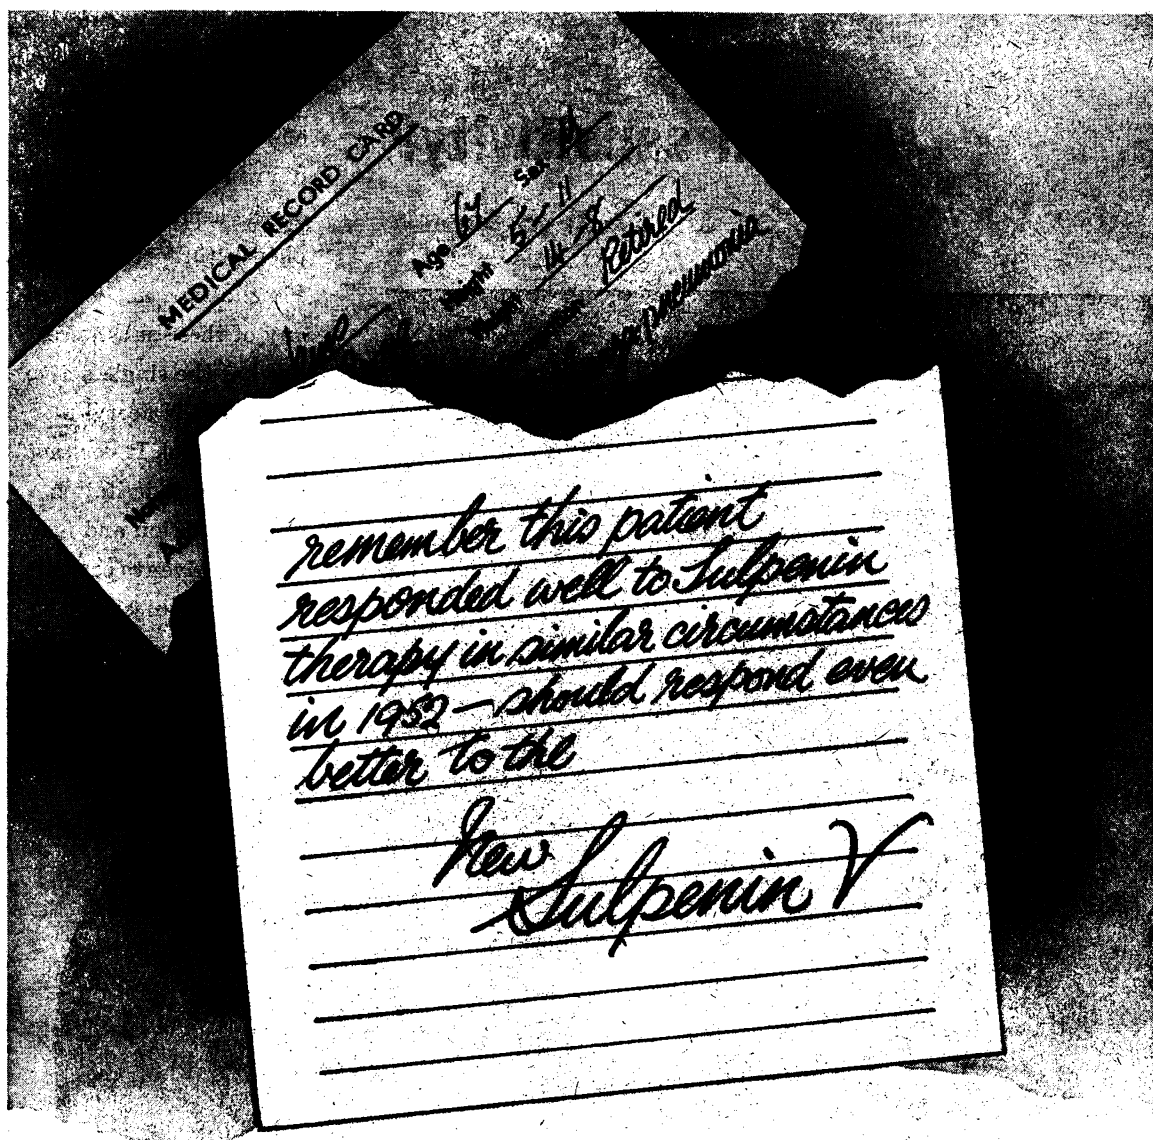 MEDICAL RECORD CARD
Age 67 Sex M
Height 5-11
Weight 14-8
Retired
pneumonia
remember this patient
responded well to Sulpenin
therapy in similar circumstances
in 1952 - should respond even
better to the
New
Sulpenin V